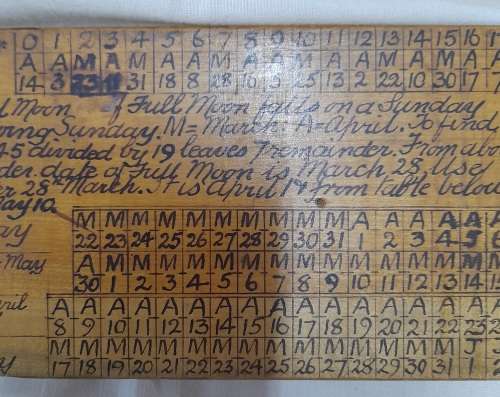 0 1 2 3 4 5 6 7 8 9 10 11 12 13 14 15 16
A A M A M A A M A A M A A M A M A
14 3 23 11 31 18 8 28 16 5 25 13 2 22 10 30 17
Moon of Full Moon falls on a Sunday
Sunday. M = March. A = April. To find
45 divided by 19 leaves 7 remainder. From
date of Full Moon is March 28. Use
28th March. It is April from table below
May 10.
M M M M M M M M M M A A A A A
22 23 24 25 26 27 28 29 30 31 1 2 3 4 5
May A M M M M M M M M M M M M M M
30 1 2 3 4 5 6 7 8 9 10 11 12 13 14
A A A A A A A A A A A A A A A A
8 9 10 11 12 13 14 15 16 17 18 19 20 21 22 23
M M M M M M M M M M M M M M M J
17 18 19 20 21 22 23 24 25 26 27 28 29 30 31 1